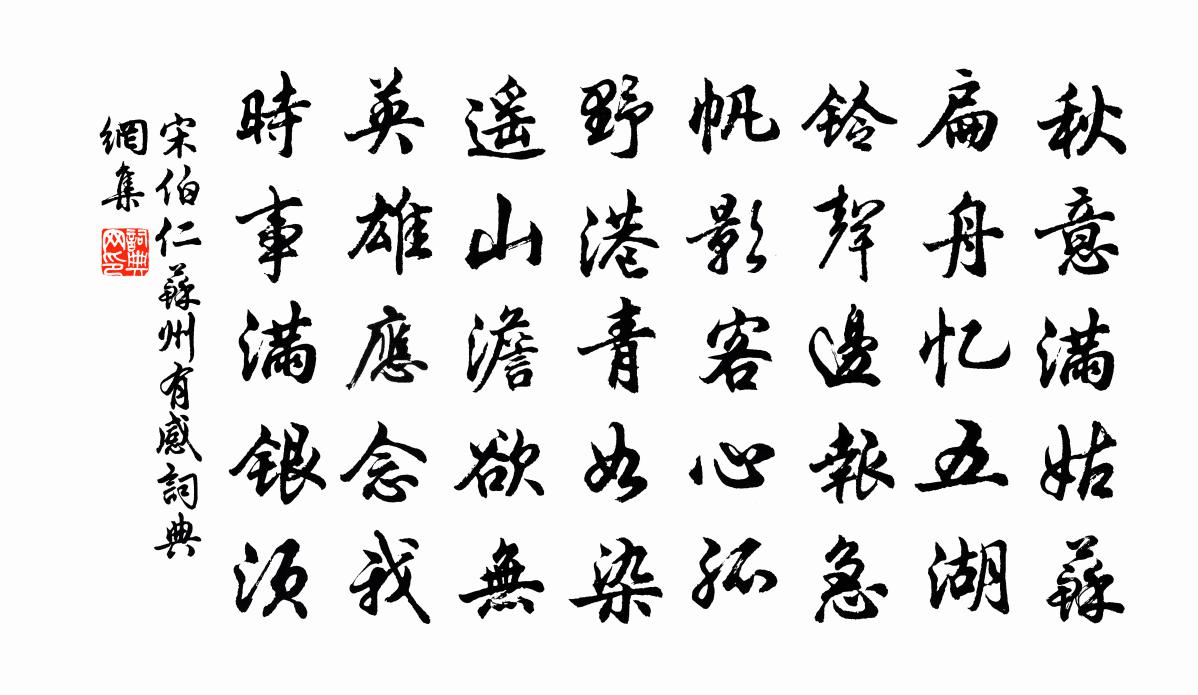 秋意满姑蘇
扁舟忆五湖
鈴聲邊報急
帆影客心孤
野港青如染
遥山澹欲無
英雄應念我
時事满銀須
宋伯仁蘇州有感詞典
網集
詞典網印